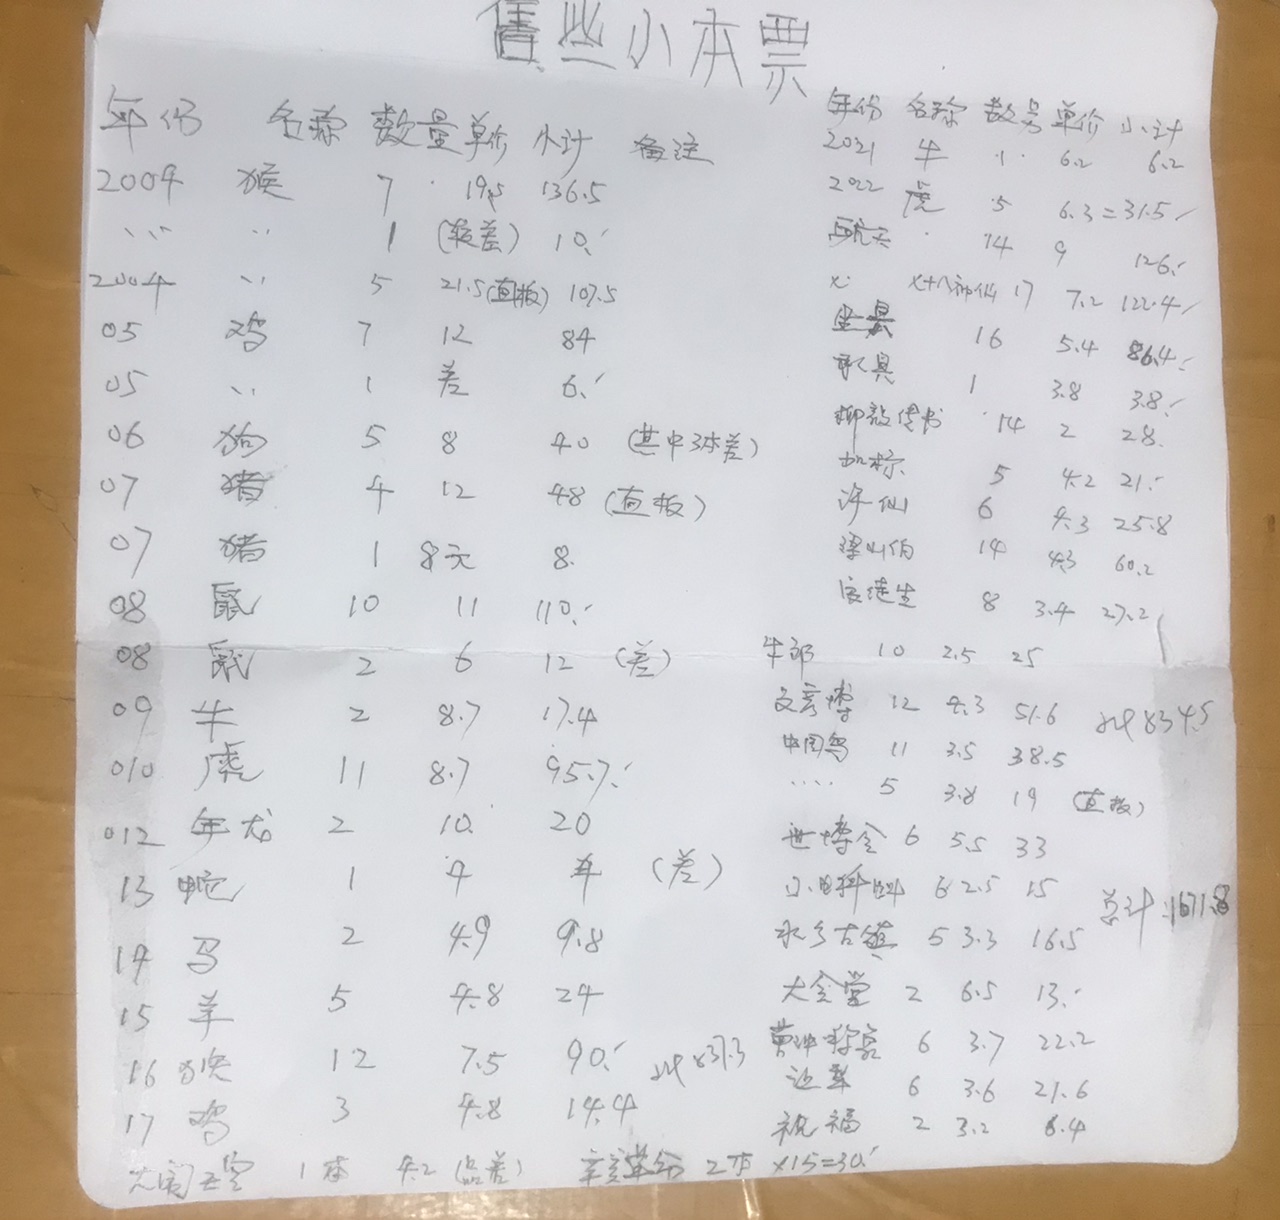 售些小本票
年份 名称 数量 单价 小计 备注
2004 猴 7 19.5 136.5
〃 〃 1 (较差) 10.
2004 〃 5 21.5(直板) 107.5
05 鸡 7 12 84
05 〃 1 差 6.
06 狗 5 8 40 (其中3本差)
07 猪 4 12 48 (直板)
07 猪 1 8元 8.
08 鼠 10 11 110.
08 鼠 2 6 12 (差)
09 牛 2 8.7 17.4
010 虎 11 8.7 95.7.
012 年龙 2 10. 20
13 蛇 1 4 4 (差)
14 马 2 4.9 9.8
15 羊 5 4.8 24
16 猴 12 7.5 90. 837.3
17 鸡 3 4.8 14.4
大闹天空 1本 4.2 (品差) 辛亥革命 2本 ×15=30.
年份 名称 数量 单价 小计
2021 牛 1 6.2 6.2
2022 虎 5 6.3=31.5
14 9 126.
17 7.2 122.4
16 5.4 86.4
家具 1 3.8 3.8
柳毅传书 14 2 28.
5 4.2 21.
许仙 6 4.3 25.8
梁山伯 14 4.3 60.2
8 3.4 27.2
牛郎 10 2.5 25
文彦博 12 4.3 51.6 834.5
中国鸟 11 3.5 38.5
〃 5 3.8 19 (直板)
世博会 6 5.5 33
6 2.5 15 总计:1671.8
水乡古镇 5 3.3 16.5
大会堂 2 6.5 13.
曹冲称象 6 3.7 22.2
6 3.6 21.6
祝福 2 3.2 6.4